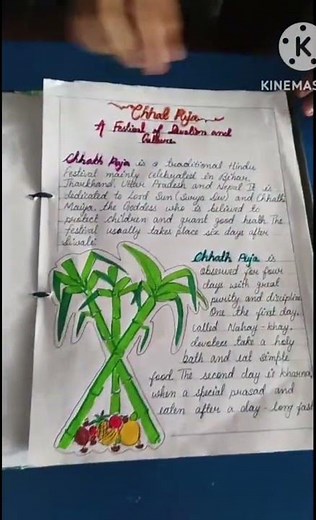 KINEMAS
Chhat Puja
A Festival of Devotion and
Culture
Chhath Puja is a traditional Hindu
Festival mainly celebrated in Bihar,
Jharkhand, Uttar Pradesh and Nepal It is
dedicated to Lord Sun (Surya Dev) and Chhathi
Maiya, the Goddess who is believed to
protect children and grant good health. The
festival usually takes place six days after
diwali
Chhath Puja is
observed for four
days with great
purity and discipline
One the first day,
called Nahay-khay,
devotees take a holy
bath and eat simple
food The second day is kharna,
when a special prasad and
eaten after a day-long fast